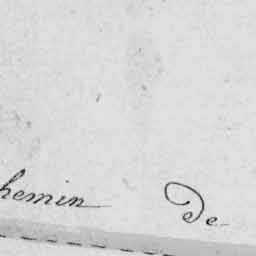 hemin De